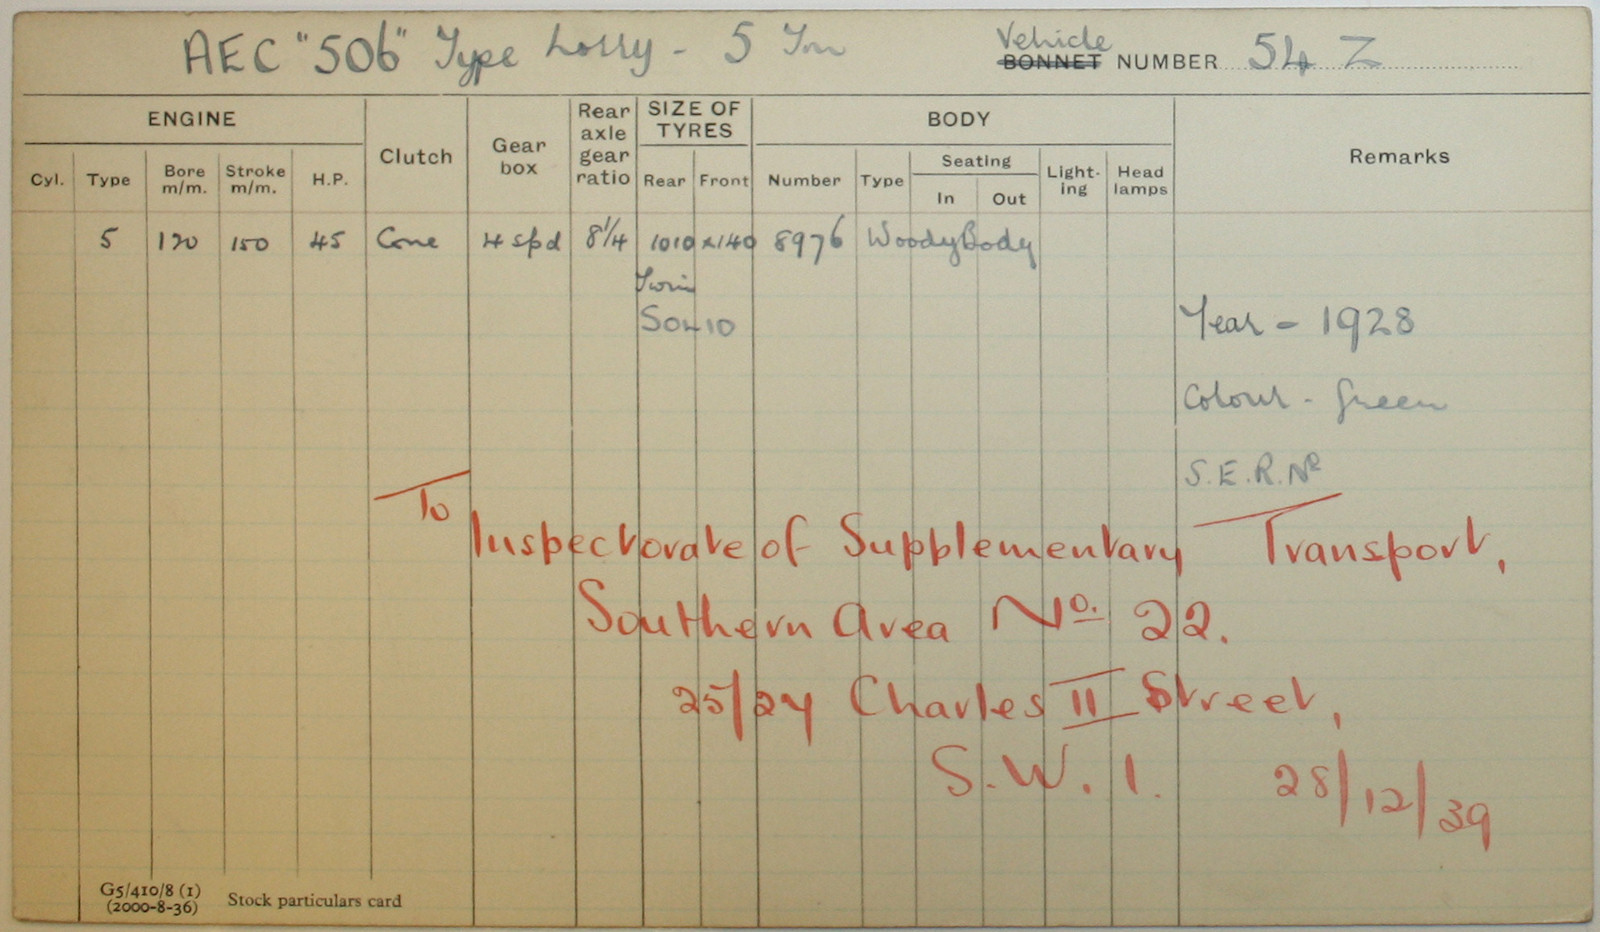 AEC "506" Type Lorry - 5 Ton
Vehicle
BONNET NUMBER 54 Z
ENGINE
Clutch
Gear box
Rear axle gear ratio
SIZE OF TYRES
BODY
Remarks
Cyl. Type Bore m/m. Stroke m/m. H.P.
Rear Front
Number Type Seating In Out Light-ing Head lamps
5 120 150 45 Cone 4 spd 8¼ 1010 x 140 8976 Woody Body
Twin
SOLID
Year - 1928
Colour - Green
S.E.R. No
To
Inspectorate of Supplementary Transport,
Southern Area No. 22.
Charles II Street,
S.W. 1.
28/12/39
G5/410/8 (1)
(2000-8-36)
Stock particulars card